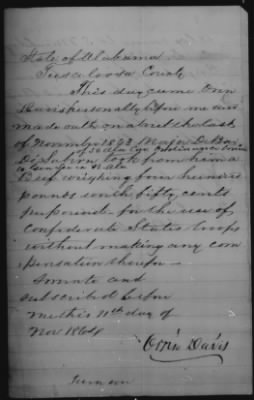 State of Alabama
Tuscaloosa County
This day came Orin
Davis personally before me and
made oath on about the last
of November 1863 Major
took from him a
Beef weighing four hundred
pounds worth fifty cents
per pound - for the use of
Confederate States troops
without making any com
pensation therefor -
Sworn to and
subscribed before
me this 11th day of
Nov 1864
Orrin Davis